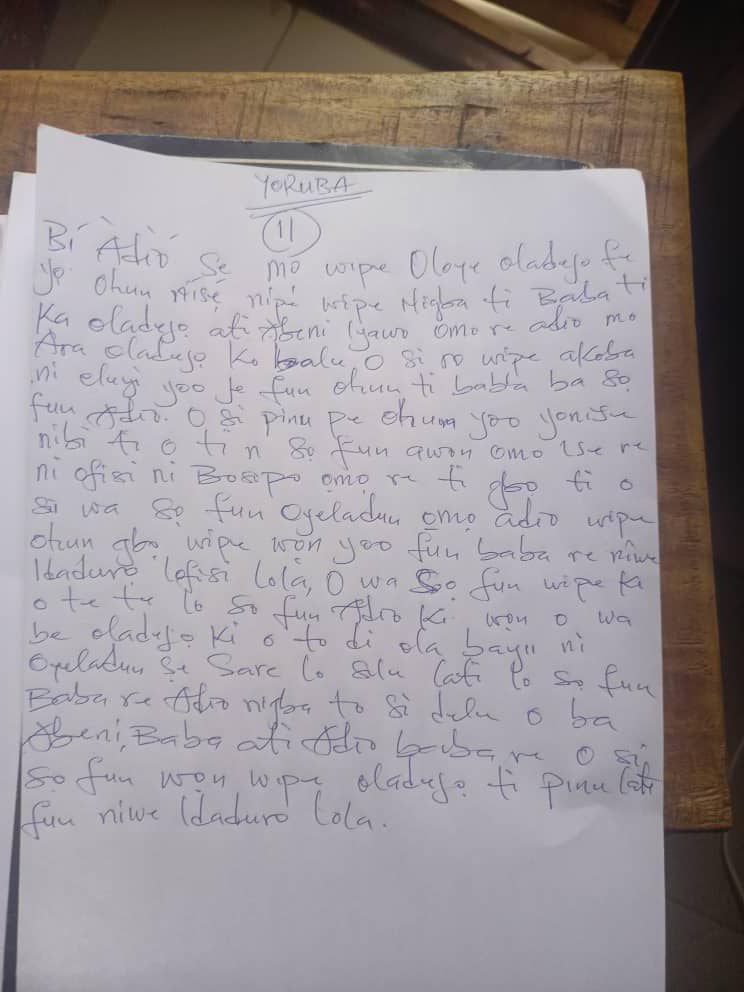 YORUBA
11
Bí Àdìó Se mo wipe Oloye oladejo fe
yo ohun nise, nipe wipe Nigba ti Baba ti
Ka oladejo ati Abeni Iyawo omo re adio mo
Ara oladejo Ko balu O si ro wipe akoba
ni eleyi yoo je fun ohun ti babba ba So
fun Adio. O si pinu pe ohun yoo yonise
nibi ti o ti n so fun awon omo ise re
ni ofisi ni Bosipo omo re ti gbo ti o
si wa so fun Oyeladun omo adio wipe
ohun gbo wipe won yoo fun baba re niwe
Idaduro lofisi lola, O wa So fun wipe Ka
o te te lo so fun Adio Ki won o wa
be oladejo Ki o to di ola bayii ni
Oyeladun Se Sare lo silu lati lo so fun
Baba re Adio nigba to Si delu o ba
Abeni, Baba ati Adio baba re O si
So fun won wipe oladejo ti pinu lati
fun niwe Idaduro lola.